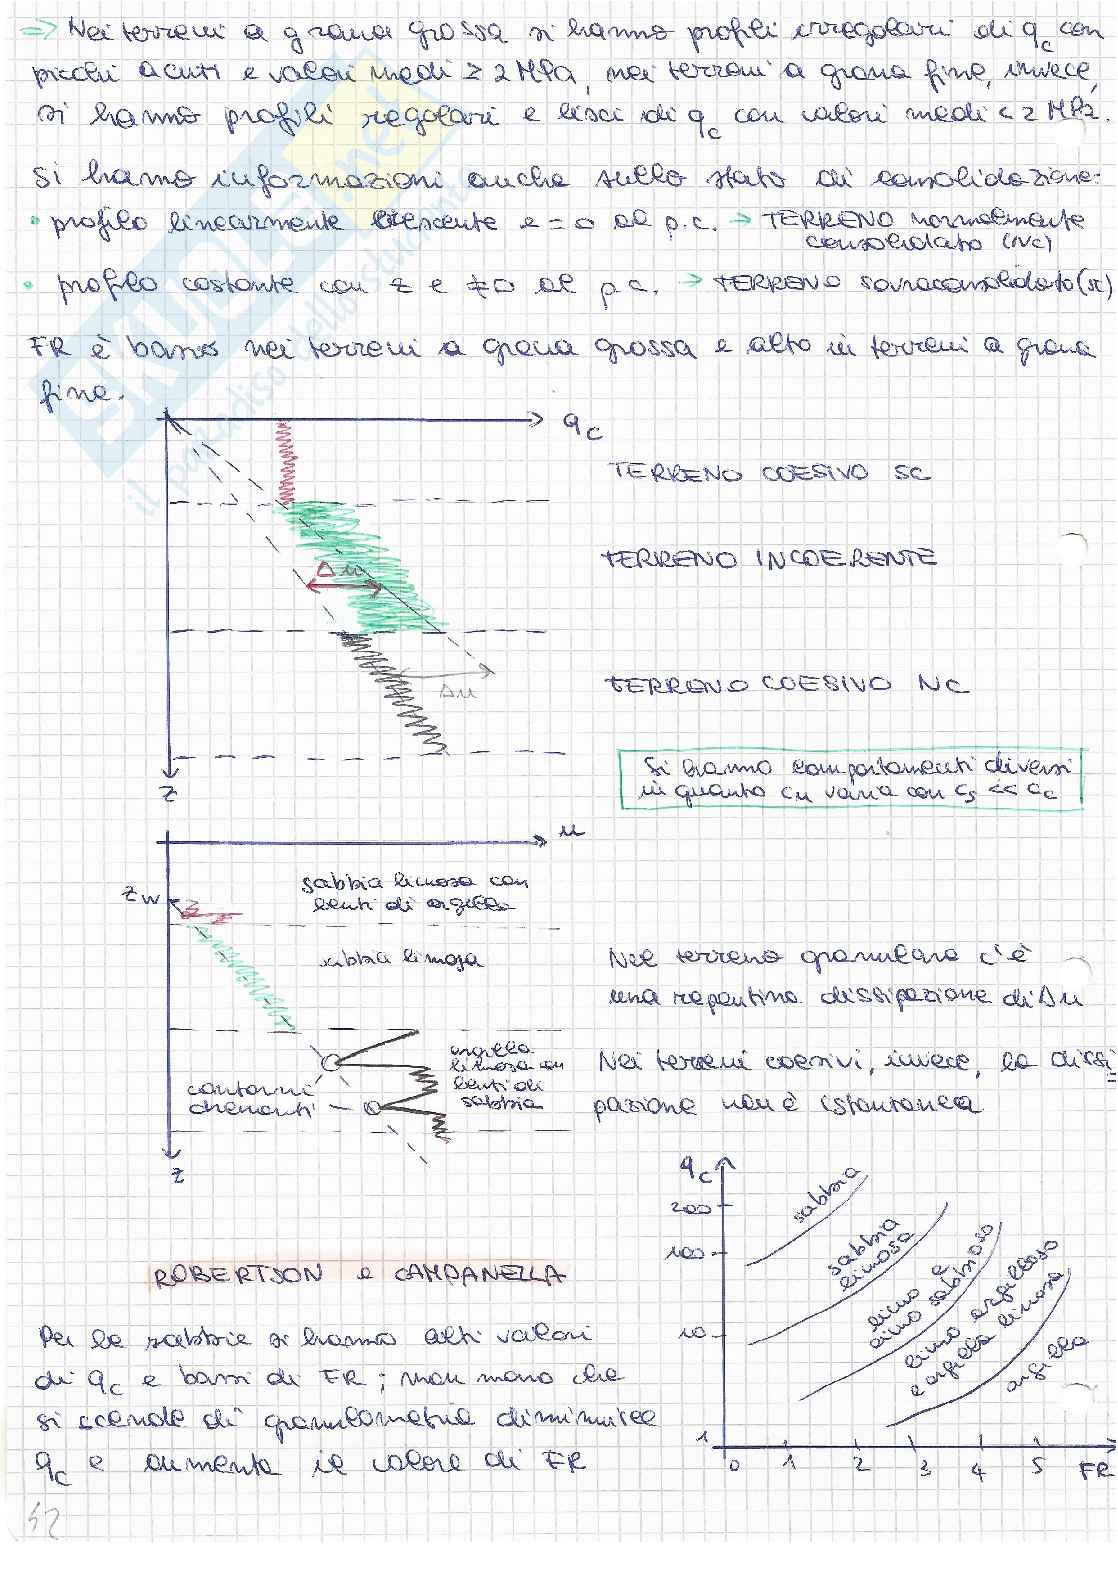 ⇒ Nei terreni a grana grossa si hanno profili irregolari di qc con
picchi acuti e valori medi ≥ 2 MPa, nei terreni a grana fine, invece,
si hanno profili regolari e lisci di qc con valori medi < 2 MPa.
Si hanno informazioni anche sullo stato di consolidazione:
• profilo linearmente crescente e = 0 al p.c. → TERRENO normalmente
consolidato (NC)
• profilo costante con z e ≠0 al p.c. → TERRENO sovraconsolidato (sc)
FR è basso nei terreni a grana grossa e alto in terreni a grana
fine.
qc
TERRENO COESIVO SC
TERRENO INCOERENTE
Δu
TERRENO COESIVO NC
Δu
z
Si hanno comportamenti diversi
in quanto cu varia con cs << cc
u
zw
sabbia limosa con
lenti di argilla
sabbia limosa
Nel terreno granulare c'è
una repentina dissipazione di Δu
argilla
limosa con
lenti di
sabbia
contorni
drenanti
Nei terreni coesivi, invece, la dissi
pazione non è istantanea
z
qc
200
100
10
1
0 1 2 3 4 5 FR
sabbia
sabbia
limosa
limo e
limo sabbioso
limo argilloso
e argilla limosa
argilla
ROBERTSON e CAMPANELLA
Per le sabbie si hanno alti valori
di qc e bassi di FR; man mano che
si scende di granulometria diminuisce
qc e aumenta il valore di FR
52
SKUOLA.net
il paradiso dello studente